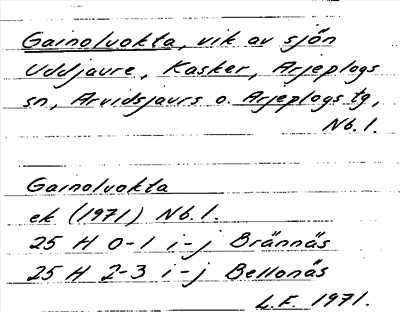 Gainoluokta, vik av sjön
Uddjaure, Kasker, Arjeplogs
sn, Arvidsjaurs o. Arjeplogs tg,
Nb.l.
Gainoluokta
ek (1971) Nb.l.
25 H 0-1 i-j Brännäs
25 H 2-3 i-j Bellonäs
L.F. 1971.